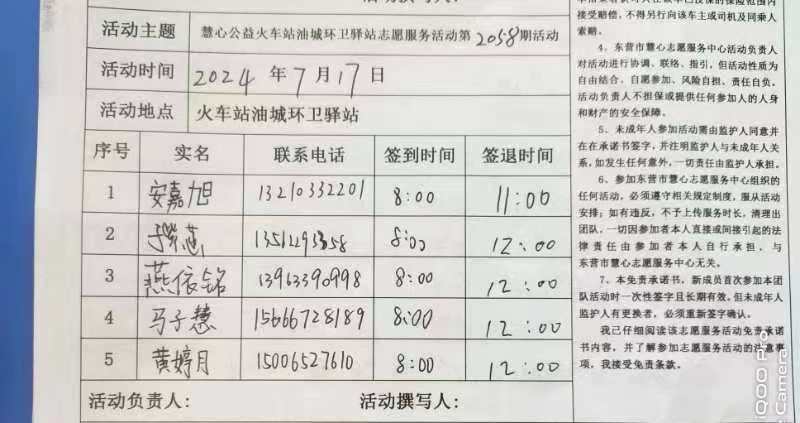 活动主题 慧心公益火车站油城环卫驿站志愿服务活动第2058期活动
活动时间 2024年7月17日
活动地点 火车站油城环卫驿站
序号 实名 联系电话 签到时间 签退时间
1 安嘉旭 13210332201 8:00 11:00
2 8:00 12:00
3 燕依铭 13963390998 8:00 12:00
4 马子慧 15666728189 8:00 12:00
5 黄婷月 15006527610 8:00 12:00
活动负责人: 活动撰写人:
接受赔偿,不得另行向该车主或司机及同乘人
索赔。
4、东营市慧心志愿服务中心活动负责人
对活动进行协调、联络、指引,但活动性质为
自由结合、自愿参加、风险自担、责任自负。
活动负责人不担保或提供任何参加人的人身
和财产的安全保障。
5、未成年人参加活动需由监护人同意并
在在承诺书签字,并注明监护人与未成年人关
系,如发生任何意外,一切责任由监护人承担。
6、参加东营市慧心志愿服务中心组织的
任何活动,必须遵守相关规定制度,服从活动
安排;如有违反,不予上传服务时长,清理出
团队,一切因参加者本人直接或间接引起的法
律责任由参加者本人自行承担,与
东营市慧心志愿服务中心无关。
7、本免责承诺书,新成员首次参加本团
队活动时一次性签字且长期有效。但未成年人
监护人有更换者,必须重新签字确认。
我已仔细阅读该志愿服务活动免责承诺
书内容,并了解参加志愿服务活动的注意事
项,我接受免责条款。
iQOO Pro
Camera